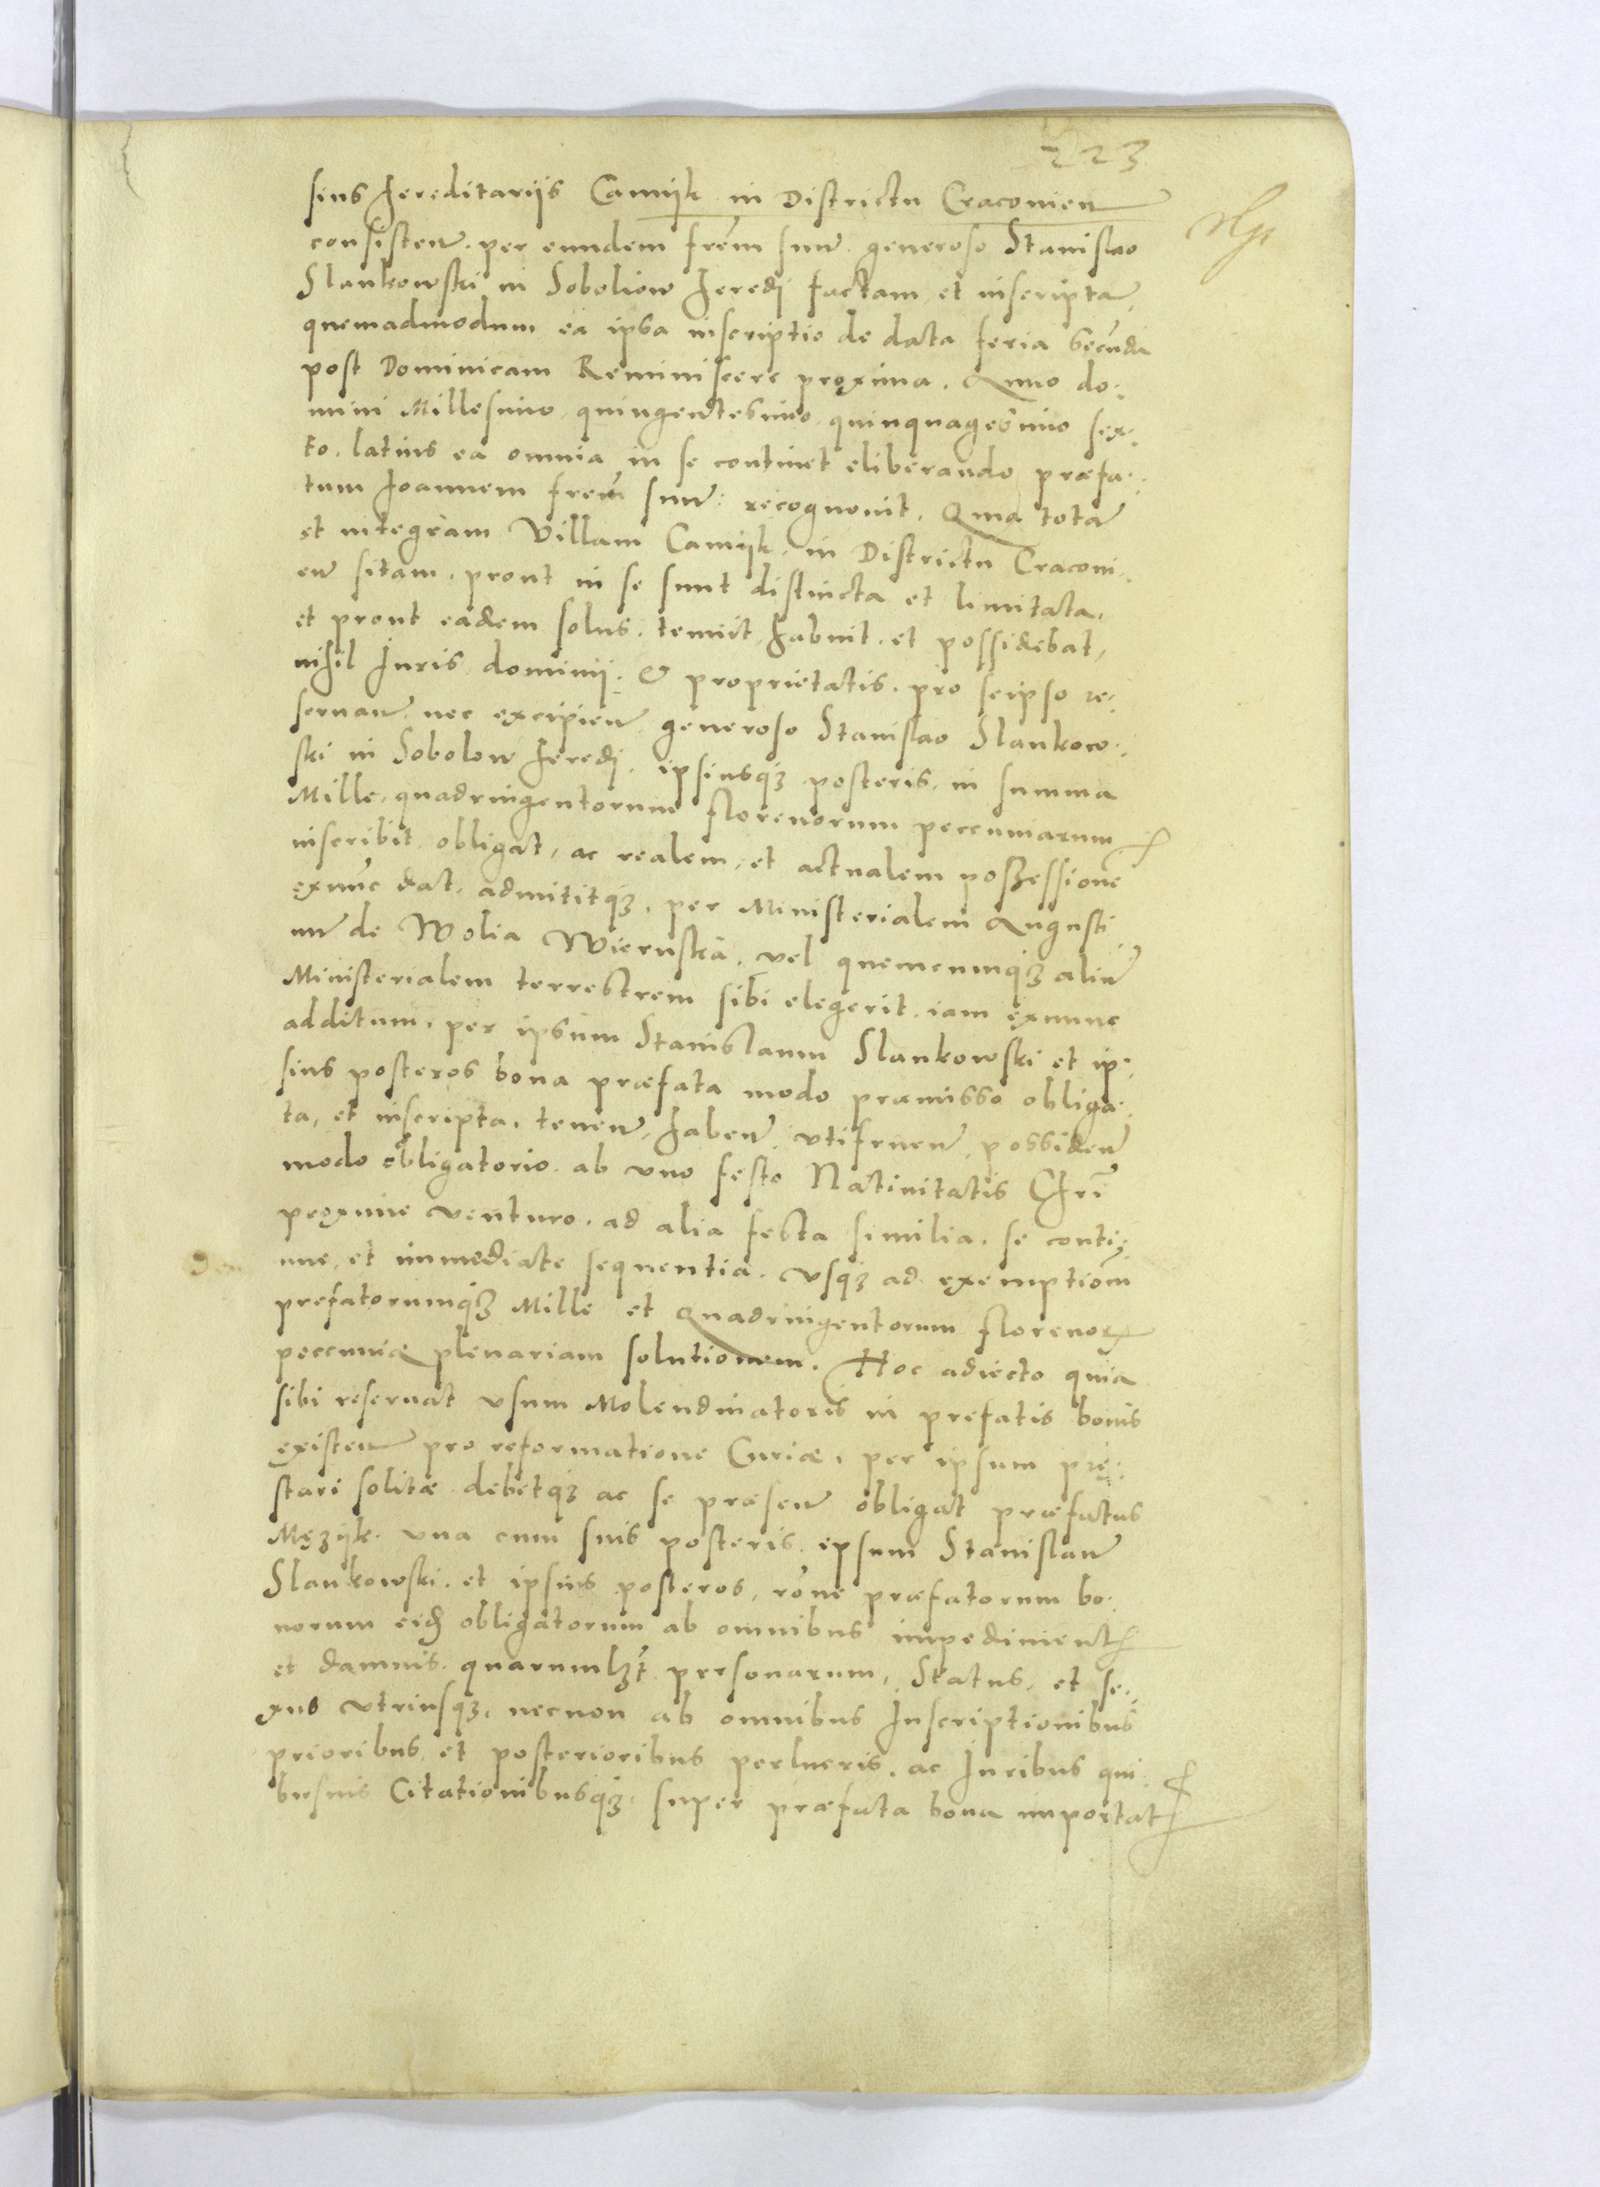 223
sius hereditariis Camijk in Districtu Cracovien
consisten. per eundem frem suu generoso Stanislao
Slankowski in Soboliow heredi factam et inscripta
quemadmodum ea ipsa inscriptio de data feria secuda
post Dominicam Reminiscere proxima. Anno do:
mini Millesimo quingentesimo quinquagesimo sex:
to. latius ea omnia in se continet eliberando præfa:
tum Joannem frem suu: recognovit. Quia tota
et integram Villam Camijk. in Districtu Cracovi:
en sitam. prout in se sunt distincta et limitata,
et prout eadem solus. tenuit habuit. et possidebat,
nihil Juris dominij. & proprietatis. pro seipso re:
servan. nec excipien generoso Stanislao Slankow:
ski in Sobolow heredi. ipsiusq3 posteris. in summa
Mille quadringentorum florenorum peccuniarum
inscribit obligat, ac realem, et actualem poszessione
exnuc dat. admititq3, per Ministerialem Augusti
nu de Wolia Wieruska. vel quemcumq3 aliu
Ministerialem terrestrem sibi elegerit. iam exnunc
additum. per ipsum Stanislaum Slankowski et ip:
sius posteros bona præfata modo præmisso obliga:
ta, et inscripta. tenen, haben utifruen, possiden
modo obligatorio. ab uno festo Nativitatis Chri
proxime venturo. ad alia festa similia. se conti:
nue et immediate sequentia. usq3 ad exemptiom
prefatorumq3 Mille et Quadringentorum florenor
peccuniæ plenariam solutionem. Hoc adiecto quia
sibi reservat usum Molendinatoris in prefatis bonis
existen pro reformatione Curiæ. per ipsum prę:
stari solitæ debetq3 ac se præsen obligat præfatus
Męzijk. una cum suis posteris. epsum Stanislau
Slankowski. et ipsius posteros, rone præfatorum bo:
norum eid obligatorum ab omnibus impediment
et damnis quarumlzt personarum, Status, et se:
xus utriusq3. necnon ab omnibus Inscriptionibus
prioribus et posterioribus perlucris. ac Juribus qui:
busvis Citationibusq3. super præfata bona importat